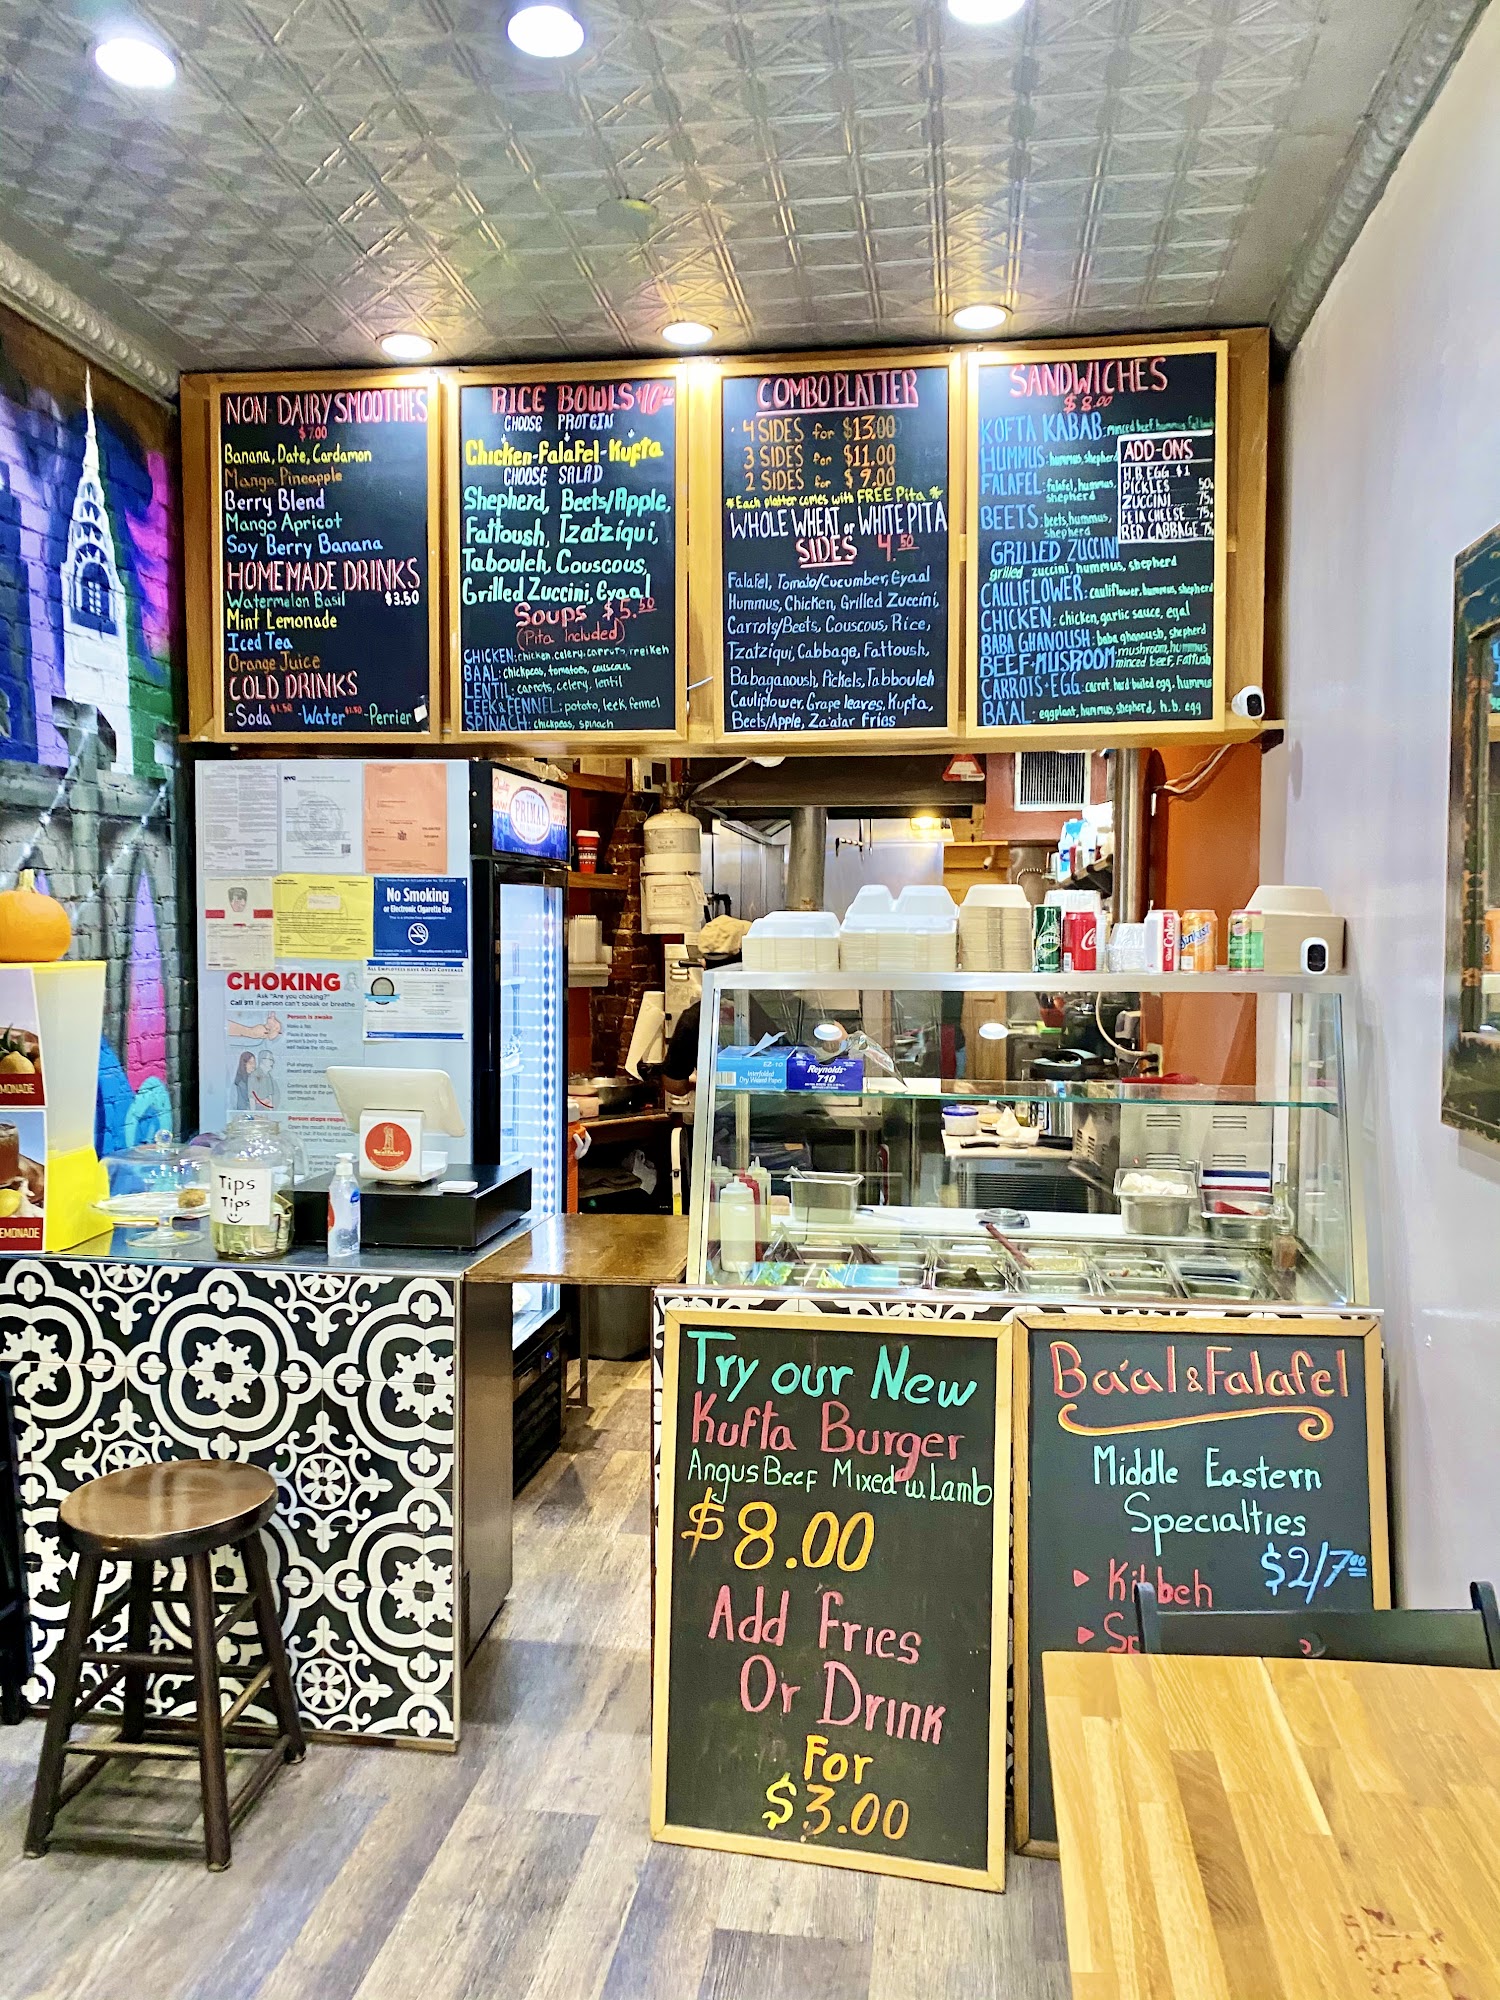 NON-DAIRY SMOOTHIES
$7.00
Banana, Date, Cardamon
Mango Pineapple
Berry Blend
Mango Apricot
Soy Berry Banana
HOMEMADE DRINKS
Watermelon Basil $3.50
Mint Lemonade
Iced Tea
Orange Juice
COLD DRINKS
-Soda $1.50 -Water $1.50 -Perrier
RICE BOWLS $10.00
CHOOSE PROTEIN
Chicken-Falafel-Kufta
CHOOSE SALAD
Shepherd, Beets/Apple,
Fattoush, Tzatziqui,
Tabouleh, Couscous,
Grilled Zuccini, Eyaal
SOUPS $5.50
(Pita Included)
CHICKEN: chicken, celery, carrots, freikeh
BAAL: chickpeas, tomatoes, couscous
LENTIL: carrots, celery, lentil
LEEK & FENNEL: potato, leek, fennel
SPINACH: chickpeas, spinach
COMBO PLATTER
4 SIDES for $13.00
3 SIDES for $11.00
2 SIDES for $9.00
*Each platter comes with FREE Pita*
WHOLE WHEAT or WHITE PITA
SIDES 4.50
Falafel, Tomato/Cucumber, Eyaal
Hummus, Chicken, Grilled Zuccini,
Carrots/Beets, Couscous, Rice,
Tzatziqui, Cabbage, Fattoush,
Babaganoush, Pickels, Tabbouleh
Cauliflower, Grape leaves, Kufta,
Beets/Apple, Za'atar Fries
SANDWICHES
$8.00
KOFTA KABAB: minced beef, hummus,
HUMMUS: hummus, shepherd
FALAFEL: falafel, hummus,
shepherd
BEETS: beets, hummus,
shepherd
GRILLED ZUCCINI
grilled zuccini, hummus, shepherd
CAULIFLOWER: cauliflower, hummus, shepherd
CHICKEN: chicken, garlic sauce, egal
BABA GHANOUSH: baba ghanoush, shepherd
BEEF+MUSROOM mushroom, hummus
minced beef, Fattush
CARROTS+EGG: carrot, hard boiled egg, hummus
BA'AL: eggplant, hummus, shepherd, h.b. egg
ADD-ONS
H.B. EGG $1
PICKLES 50¢
ZUCCINI 75¢
FETA CHEESE 75¢
RED CABBAGE 75¢
NYC
No Smoking
or Electronic Cigarette Use
CHOKING
Ask "Are you choking?"
Call 911 if person can't speak or breathe
Person is awake
PRIMAL
Tips
Tips
MONADE
EMONADE
Coke
Sunkist
EZ-10
Interfolded
Dry Waxed Paper
Reynolds
710
Try our New
Kufta Burger
Angus Beef Mixed w. Lamb
$8.00
Add Fries
Or Drink
For
$3.00
Ba'al & Falafel
Middle Eastern
Specialties
$2/7.00
Kibbeh